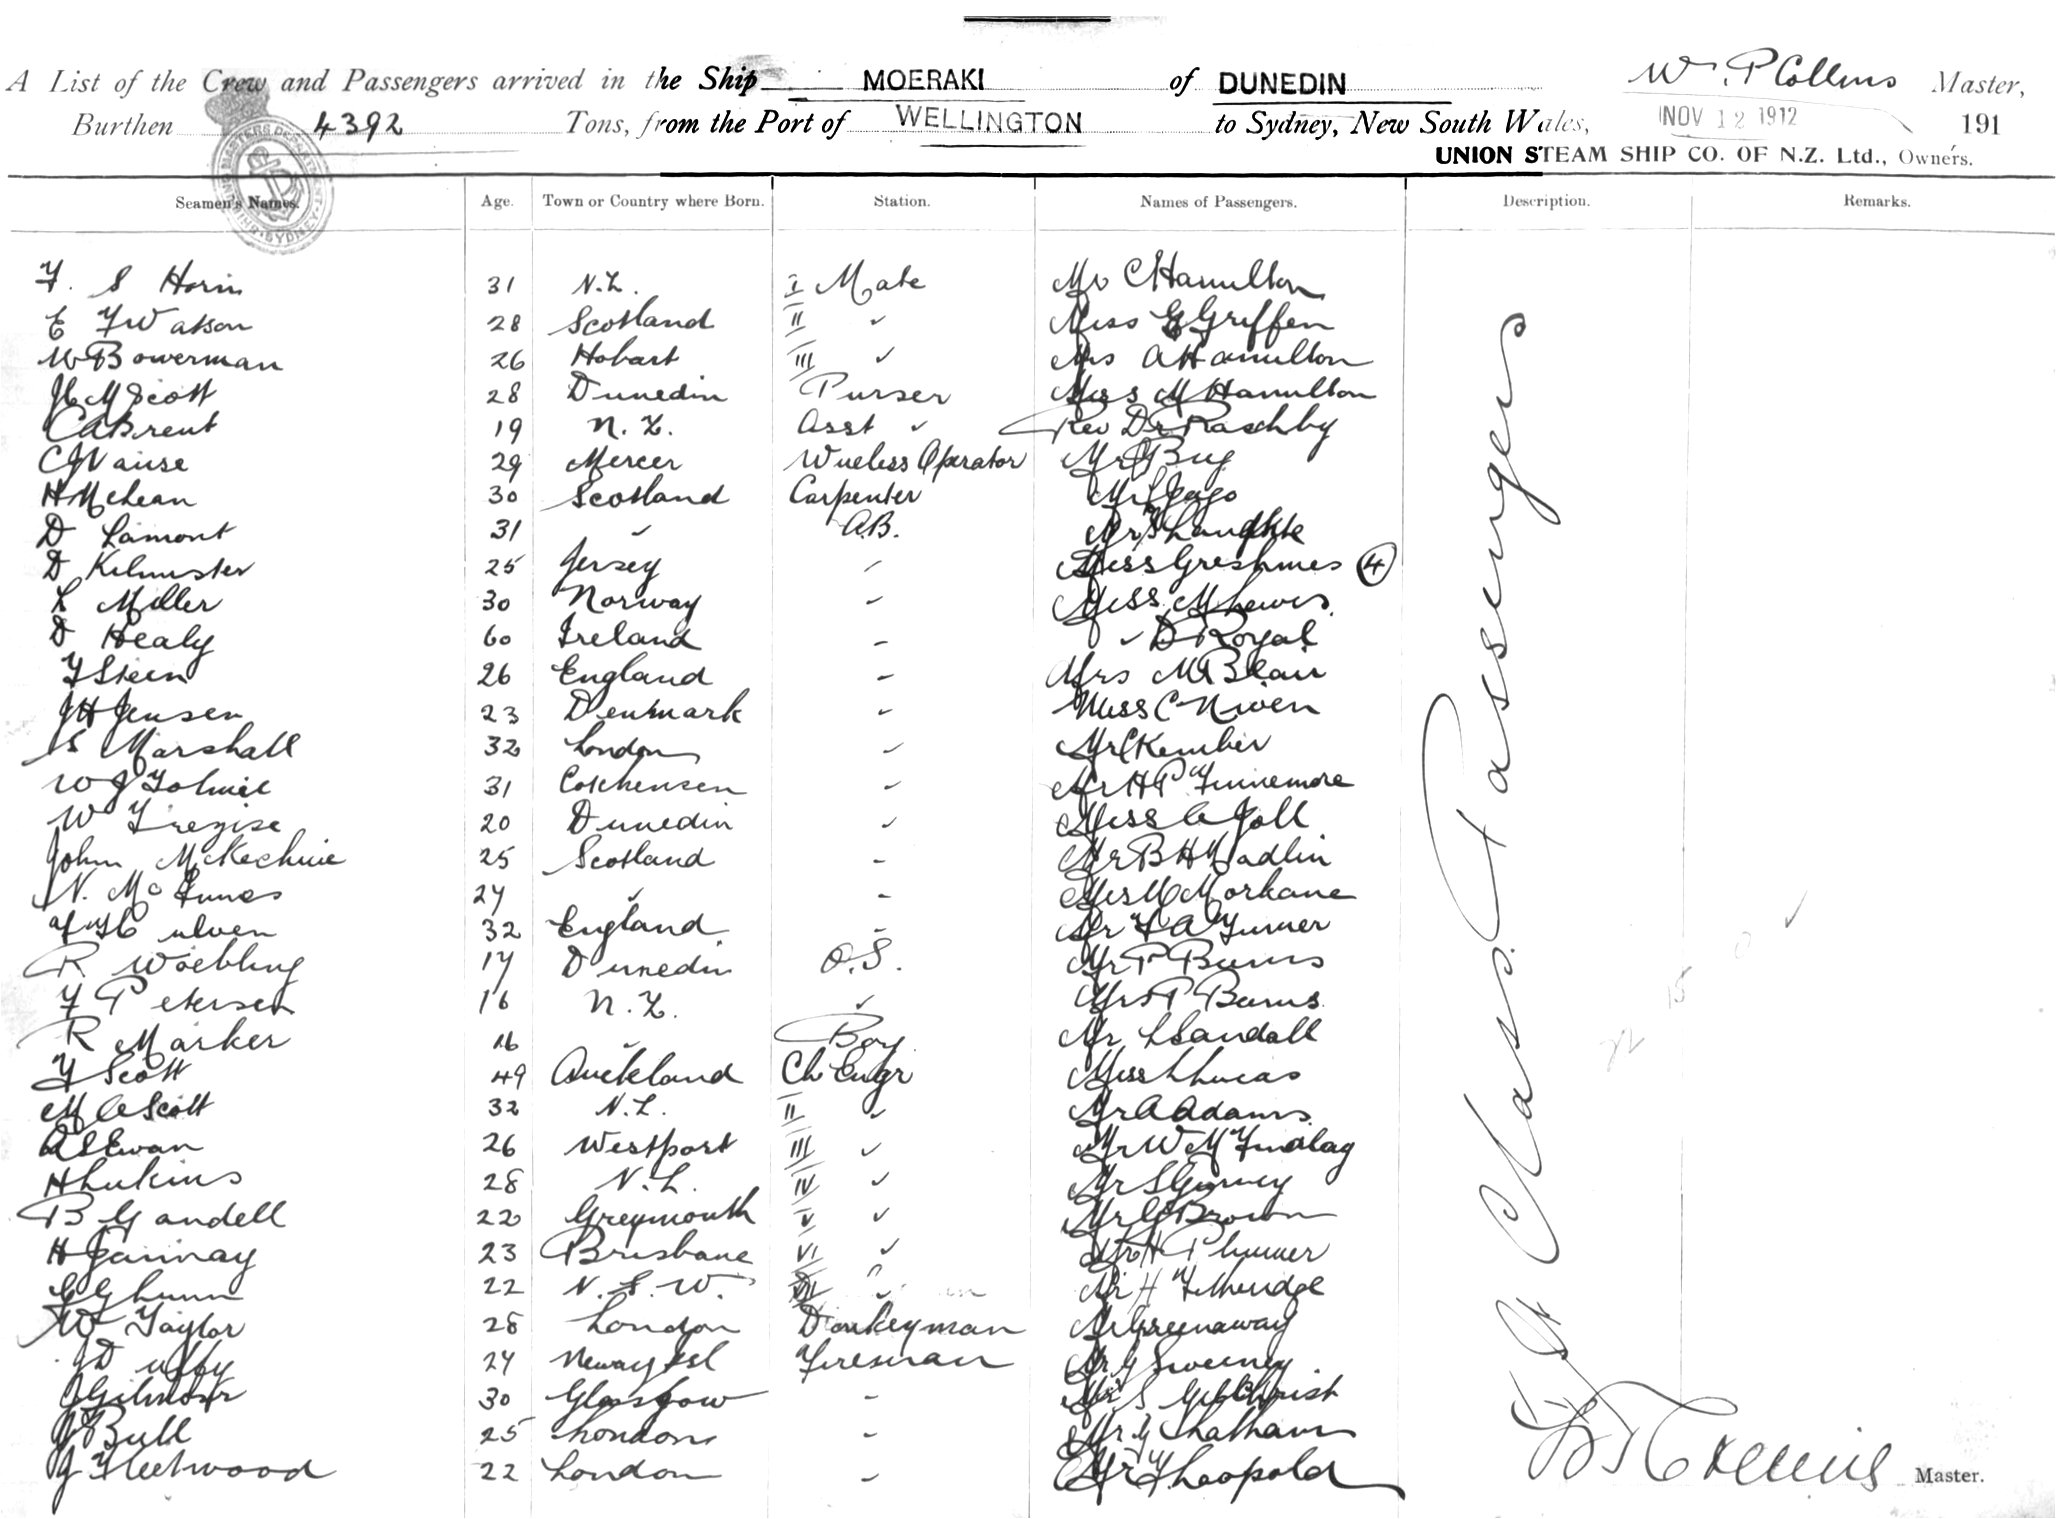 A List of the Crew and Passengers arrived in the Ship MOERAKI of DUNEDIN W. P Collins Master,
Burthen 4392 Tons, from the Port of WELLINGTON to Sydney, New South Wales, NOV 12 1912 191
UNION STEAM SHIP CO. OF N.Z. Ltd., Owners.
Seamen's Names. Age. Town or Country where Born. Station. Names of Passengers. Description. Remarks.
F. S Horn 31 N.Z. I Mate Mr C Hamilton
E F Watson 28 Scotland II ✓ Miss G Griffen
W Bowerman 26 Hobart III ✓ Mrs A Hamilton
M Scott 28 Dunedin Purser Miss M Hamilton
C A Brent 19 N.Z. Asst ✓ Rev Dr Raschby
C J Vause 29 Mercer Wireless Operator Mr
H McLean 30 Scotland Carpenter Mr Jago
D Lamont 31 ✓ A.B. Mr
D Kilmister 25 Jersey Miss Greshmes 4
L Miller 30 Norway Miss M Lewis
D Healy 60 Ireland ✓ D Royal
F Steen 26 England Mrs M Blair
J H Jensen 23 Denmark Miss C Niven
S Marshall 32 London ✓ Mr C Kember
W J Tolmie 31 ✓ Mr H P Finnemore
W Tregise 20 Dunedin ✓ Miss C Joll
John McKechnie 25 Scotland Mr B H Madlin
N. McInnes 27 ✓ Mrs M Morkane
Culven 32 England Mr F A Turner
R Woebling 17 Dunedin O.S. Mr P Burns
F Petersen 16 N.Z. ✓ Mrs P Burns
R Marker 16 Boy Mr L Sandall
F Scott 49 Auckland Ch Engr Miss L Lucas
M C Scott 32 N.Z. II ✓ Mr A Adams
A S Ewan 26 Westport III ✓ Mr W M Findlay
H Lukins 28 N.Z. IV ✓ Mr S Gurney
B Gandell 22 Greymouth V ✓ Mr G Brown
H Jannay 23 Brisbane VI ✓ Mr H Plummer
G Lunn 22 N.S.W. ✓ Mr H
W Taylor 28 London Donkeyman Mr Greenaway
J Duffy 24 Fireman Mr G Sweeney
J Gilmour 30 Glasgow Mr S Gilchrist
J Bull 25 London Mr G Latham
J Fleetwood 22 London Mr F Leopold
Class Passengers
Collins Master.